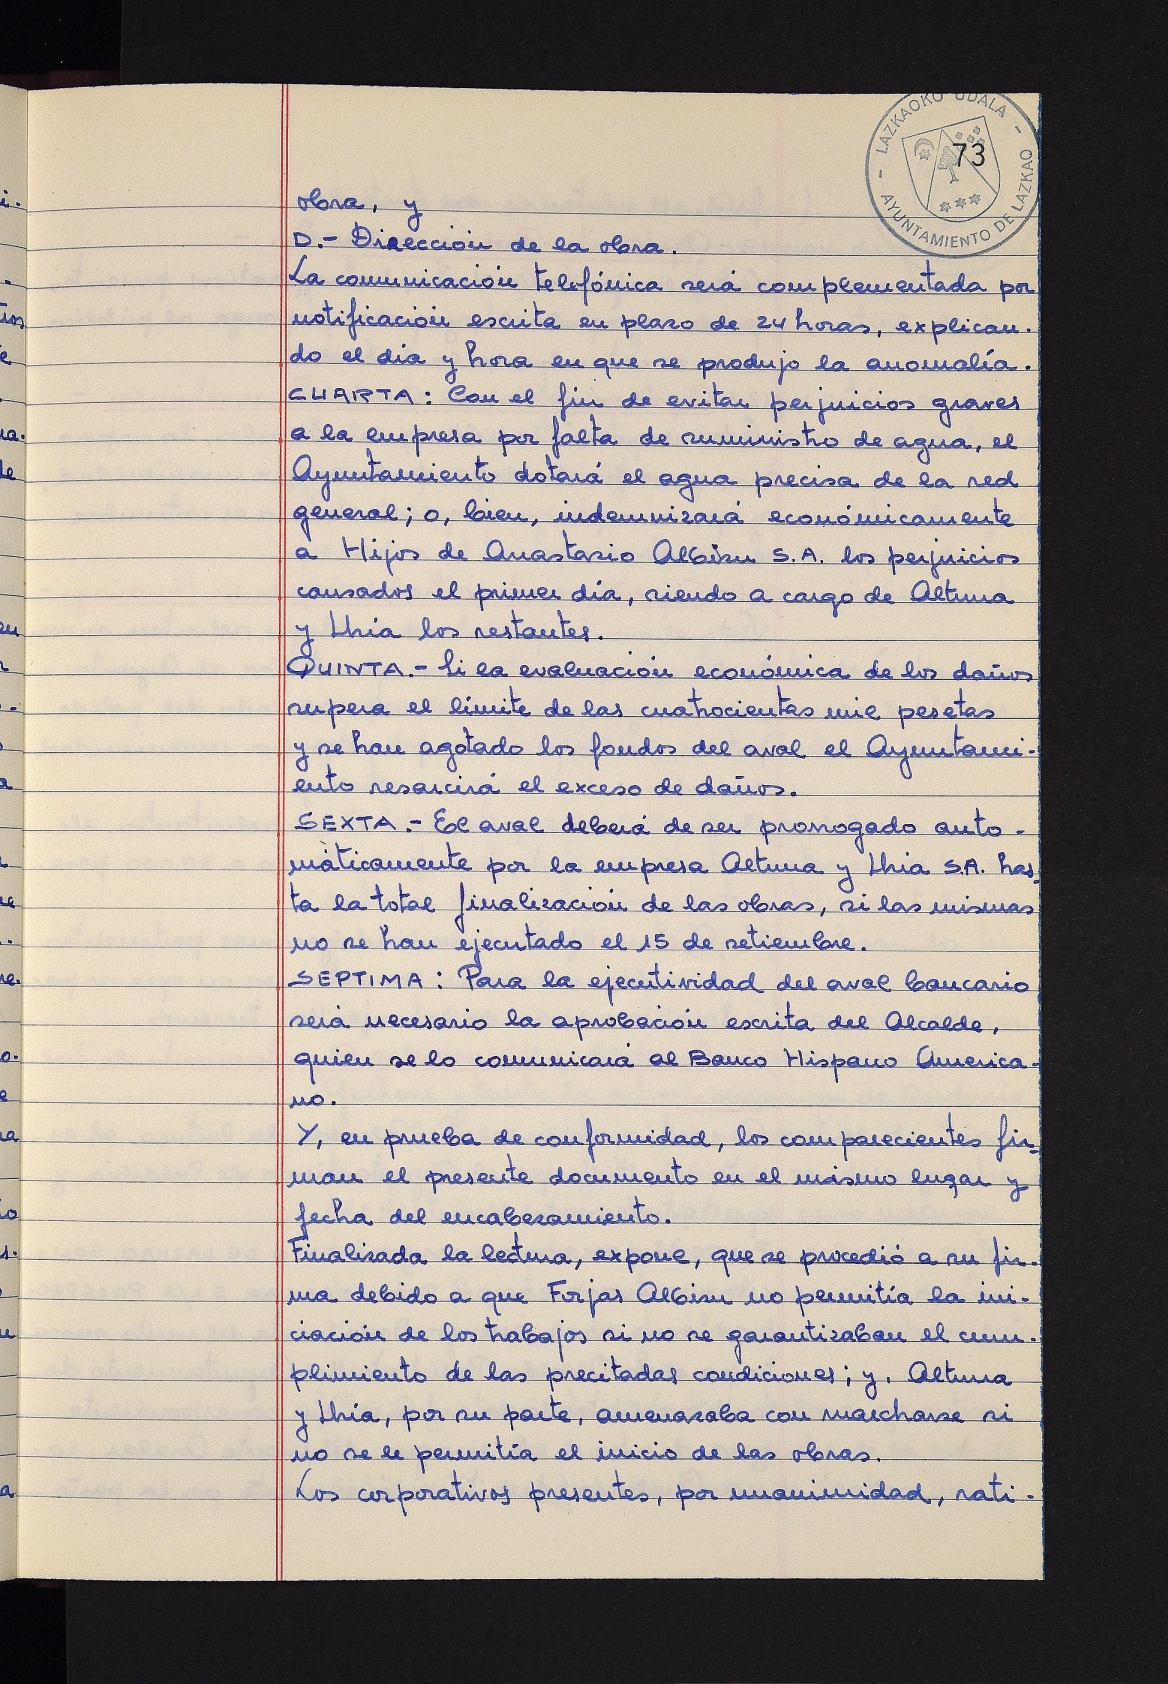 LAZKAOKO UDALA - AYUNTAMIENTO DE LAZKAO -
73
obra, y
D.- Dirección de la obra.
La comunicación telefónica será complementada por
notificación escrita en plazo de 24 horas, explican-
do el día y hora en que se produjo la anomalía.
CUARTA: Con el fin de evitar perjuicios graves
a la empresa por falta de suministro de agua, el
Ayuntamiento dotará el agua precisa de la red
general; o, bien, indemnizará económicamente
a Hijos de Anastasio Albisu S.A. los perjuicios
causados el primer día, siendo a cargo de Altuna
y Uria los restantes.
QUINTA.- Si la evaluación económica de los daños
supera el límite de las cuatrocientas mil pesetas
y se han agotado los fondos del aval el Ayuntami-
ento resarcirá el exceso de daños.
SEXTA.- El aval deberá de ser prorrogado auto-
máticamente por la empresa Altuna y Uria S.A. has-
ta la total finalización de las obras, si las mismas
no se han ejecutado el 15 de setiembre.
SEPTIMA: Para la ejecutividad del aval bancario
será necesario la aprobación escrita del Alcalde,
quien se lo comunicará al Banco Hispano America-
no.
Y, en prueba de conformidad, los comparecientes fir-
man el presente documento en el mismo lugar y
fecha del encabezamiento.
Finalizada la lectura, expone, que se procedió a su fir-
ma debido a que Forjas Albisu no permitía la ini-
ciación de los trabajos si no se garantizaban el cum-
plimiento de las precitadas condiciones; y, Altuna
y Uria, por su parte, amenazaba con marcharse si
no se le permitía el inicio de las obras.
Los corporativos presentes, por unanimidad, rati-